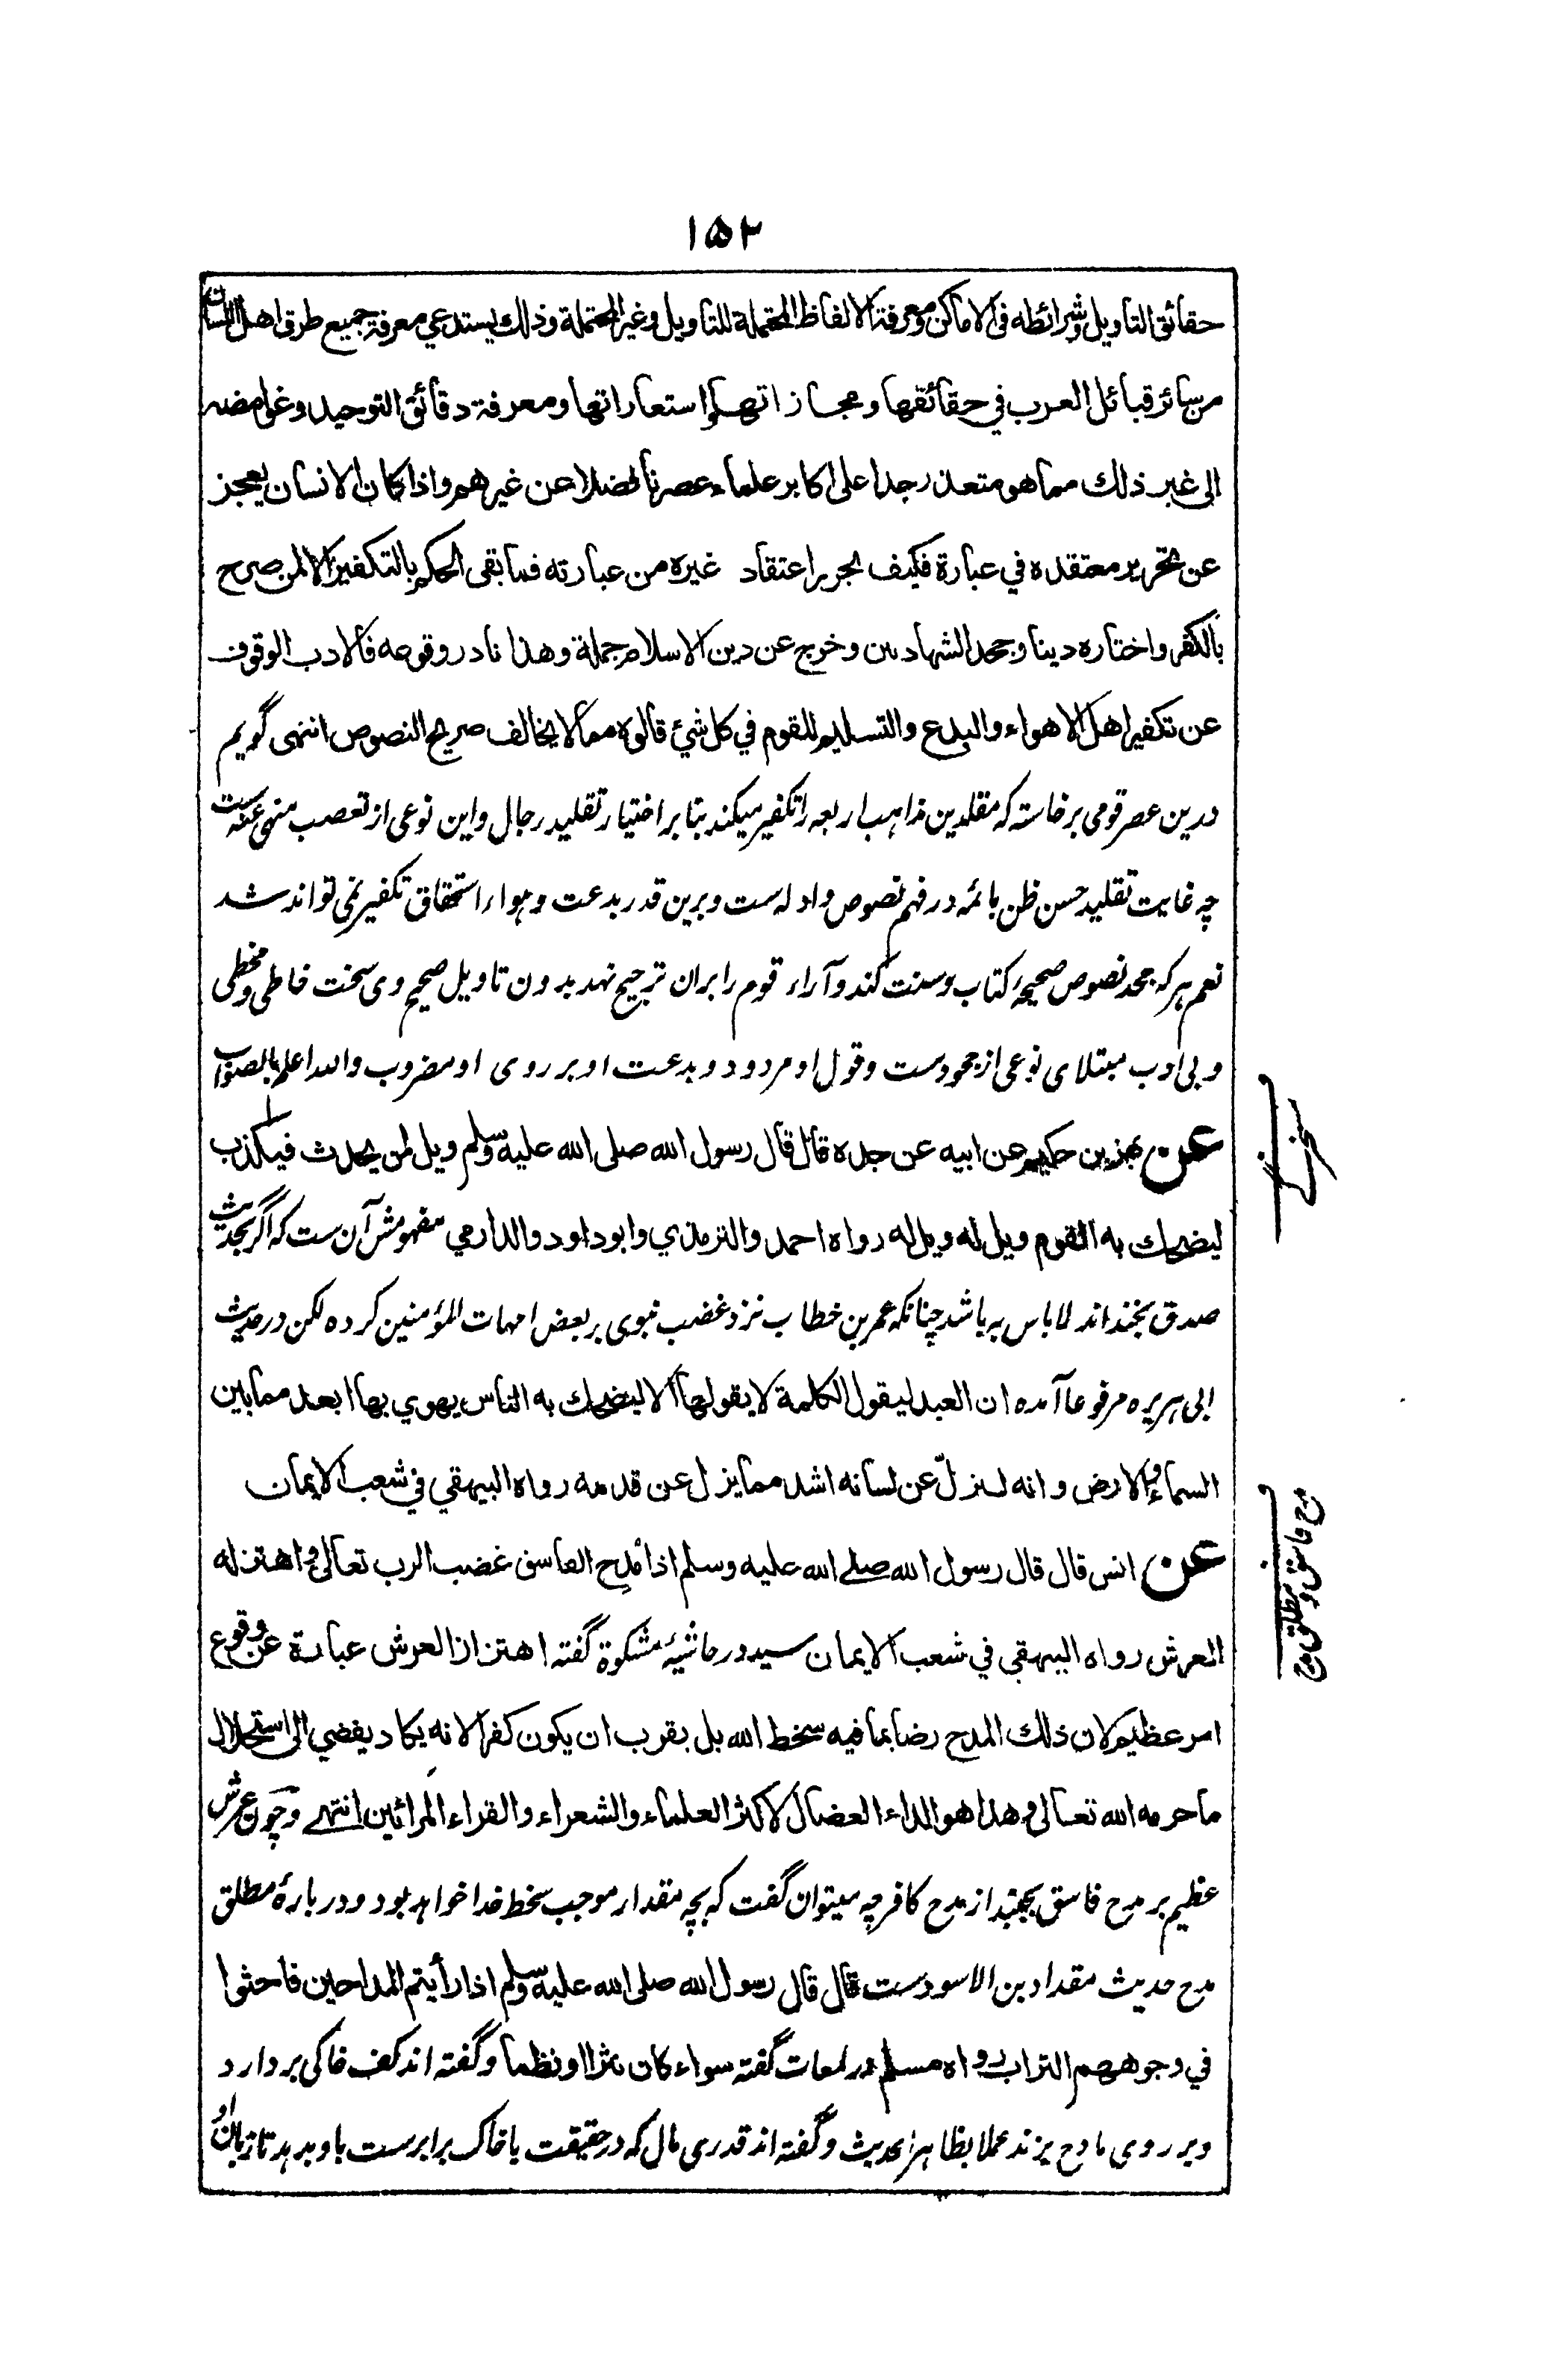 ۱۵۲
حقائق التاويل وشرائطه في الاماكن ومعرفة الالفاظ المحتملة للتاويل وغير المحتملة وذلك يستدعي معرفة جميع طرق اهل اللسان
من سائر قبائل العرب في حقائقها ومجازاتها واستعاراتها ومعرفة دقائق التوحيد وغوامضه
الى غير ذلك مما هو متعذر جدا على اكابر علماء عصرنا فضلا عن غيرهم واذا كان الانسان يعجز
عن تحرير معتقده في عبارة فكيف يحرر اعتقاد غيره من عبارته فما بقى الحكم بالتكفير الا لمن صرح
بالكفر واختاره دينا وجحد الشهادتين وخرج عن دين الاسلام جملة وهذا نادر وقوعه فالادب الوقوف
عن تكفير اهل الاهواء والبدع والتسليم للقوم في كل شيئ قالوه مما لا يخالف صريح النصوص انتهى گويم
درين عصر قومى برخاسته كه مقلدين مذاهب اربعه را تكفير ميكند بنا بر اختيار تقليد رجال واين نوعى از تعصب منهى عنه ست
چه غايت تقليد حسن ظن بائمه در فهم نصوص وادله ست وبرين قدر بدعت وهواء استحقاق تكفير نمى تواند شد
نعم هركه جحد نصوص صحيحۀ كتاب وسنت كند وآراء قوم را بران ترجيح نهد بدون تاويل صحيح وى سخت خاطى ومخطى
وبى ادب مبتلاى نوعى از جحودست وقول او مردود وبدعت او بر روى او مضروب والله اعلم بالصواب
عن بهز بن حكيم عن ابيه عن جده قال قال رسول الله صلى الله عليه وسلم ويل لمن يحدث فيكذب
ليضحك به القوم ويل له ويل له رواه احمد والترمذي وابو داود والدارمي مفهومش آن ست كه اگر بحديث
صدق بخنداند لا باس به باشد چنانكه عمر بن خطاب نزد غضب نبوى بر بعض امهات المؤمنين كرده لكن در حديث
ابى هريره مرفوعا آمده ان العبد ليقول الكلمة لا يقولها الا ليضحك به الناس يهوي بها ابعد مما بين
السماء والارض وانه ليزلّ عن لسانه اشد مما يزل عن قدمه رواه البيهقي في شعب الايمان
عن انس قال قال رسول الله صلے الله عليه وسلم اذا مُدِح الفاسق غضب الرب تعالى واهتز له
العرش رواه البيهقي في شعب الايمان سيد در حاشيۀ مشكوة گفته اهتزاز العرش عبارة عن وقوع
امر عظيم لان ذلك المدح رضا بما فيه سخط الله بل يقرب ان يكون كفرا لانه يكاد يفضي الى استحلال
ما حرمه الله تعالى وهذا هو الداء العضال لاكثر العلماء والشعراء والقراء المرائين انتهے وچون عرش
عظيم بر مدح فاسق بجنبد از مدح كافر چه ميتوان گفت كه بچه مقدار موجب سخط خدا خواهد بود ودر بارۀ مطلق
مدح حديث مقداد بن الاسودست قال قال رسول الله صلى الله عليه وسلم اذا رأيتم المداحين فاحثوا
في وجوههم التراب رواه مسلم در لمعات گفته سواء كان نثرا او نظما وگفته اند كف خاكى بردارد
وبر روى مادح بزند عملا بظاهر الحديث وگفته اند قدرى مال كه در حقيقت با خاك برابرست باو بدهد تا زبان او
مدح فاسق ومطلق مدح